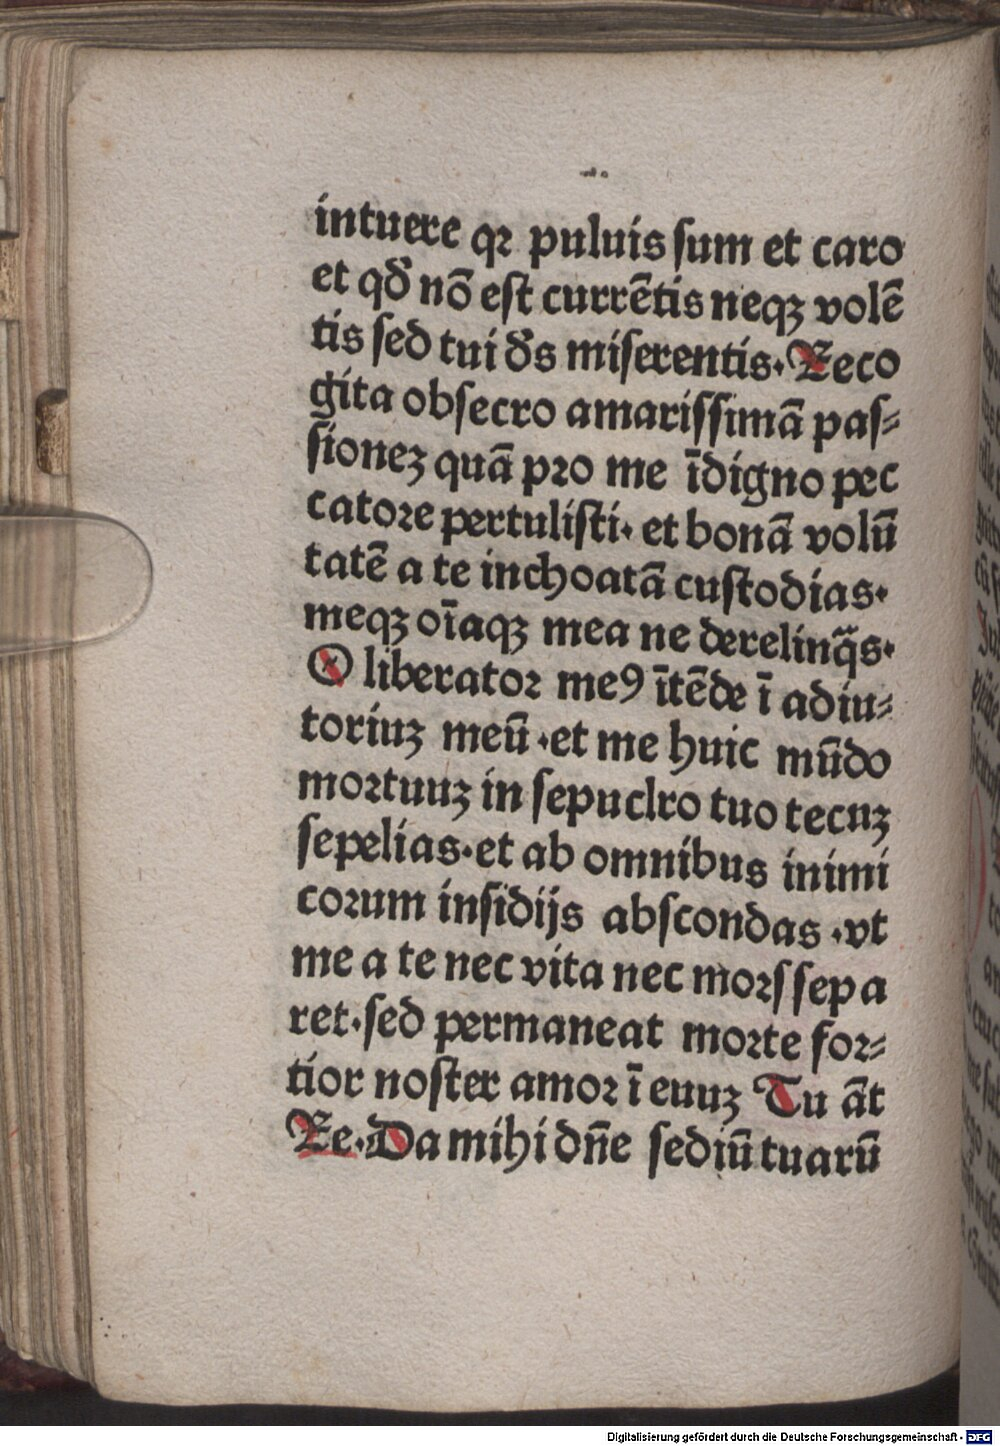 intuere qꝛ puluis ſum et caro
et qð nõ eſt currētis neqꝫ volē
tis ſed tui ðs miſerentis. Reco
gita obſecro amariſſimā paſ⸗
ſioneꝫ quā pꝛo me īdigno pec
catoꝛe pertuliſti. et bonā volū
tatē a te inchoatā cuſtodias.
meqꝫ oīaqꝫ mea ne derelinq̄s.
O liberatoꝛ meꝰ ītēde ī adiu⸗
toriuꝫ meū .et me huic mūdo
moꝛtuuꝫ in ſepuclro tuo tecuꝫ
ſepelias.et ab omnibus inimi
coꝛum inſidijs abſcondas .vt
me a te nec vita nec moꝛs ſepa
ret.ſed permaneat moꝛte foꝛ⸗
tior noſter amoꝛ ī euuꝫ Tu āt
Re. Da mihi dn̄e ſediū tuarū
Digitalisierung gefördert durch die Deutsche Forschungsgemeinschaft - DFG